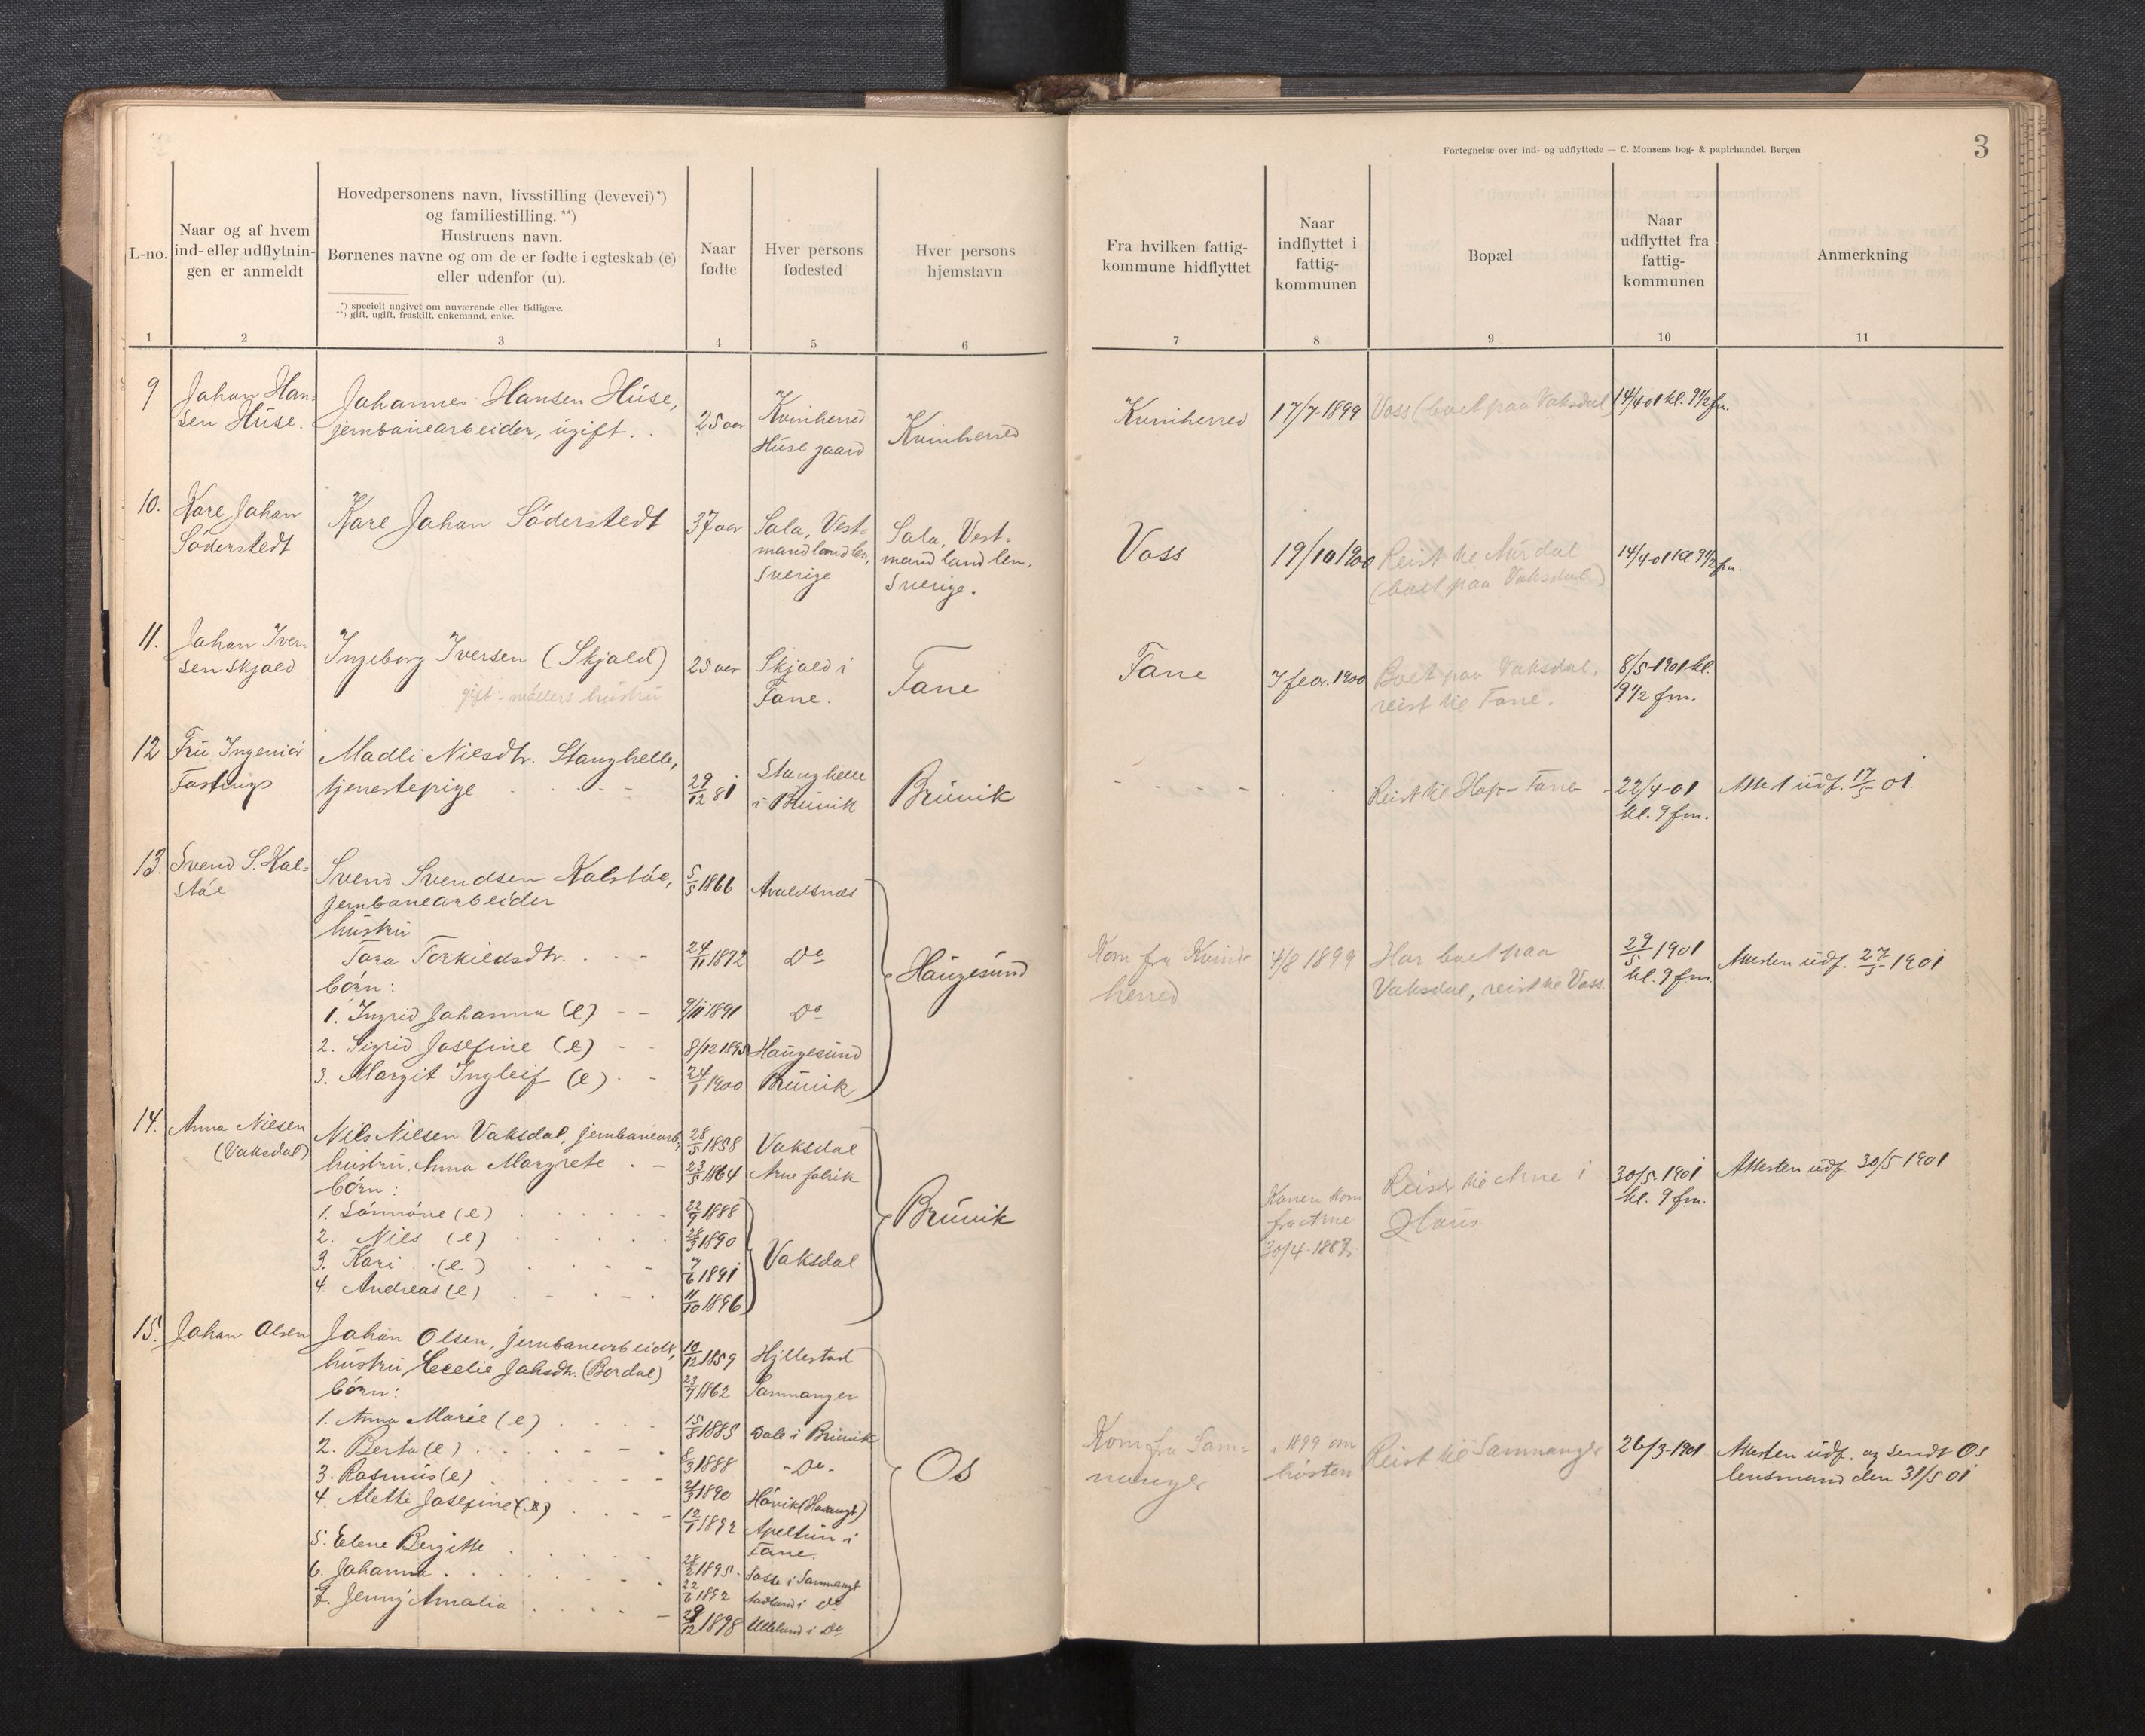 Fortegnelse over ind- og udflyttede — C. Monsens bog- & papirhandel, Bergen
3
L-no.
Naar og af hvem
ind- eller udflytnin-
gen er anmeldt
Hovedpersonens navn, livsstilling (levevei)*)
og familiestilling. **)
Hustruens navn.
Børnenes navne og om de er fødte i egteskab (e)
eller udenfor (u).
*) specielt angivet om nuværende eller tidligere.
**) gift, ugift, fraskilt, enkemand, enke.
Naar
fødte
Hver persons
fødested
Hver persons
hjemstavn
Fra hvilken fattig-
kommune hidflyttet
Naar
indflyttet i
fattig-
kommunen
Bopæl
Naar
udflyttet fra
fattig-
kommunen
Anmerkning
1 2 3 4 5 6 7 8 9 10 11
9
Johan Han-
sen Huse.
Johannes Hansen Huse,
jernbanearbeider, ugift.
25 aar
Kvinherred
Huse gaard
Kvinherred
Kvinherred
17/7-1899
Voss (boet paa Vaksdal)
14/4 01 kl. 9 1/2 fm.
10.
Karl Johan
Söderstedt
Karl Johan Söderstedt
37 aar
Sala, Vest-
mandland len,
Sverige
Sala, Vest-
mandland len,
Sverige.
Voss
19/10 1900
Reist til
(boet paa Vaksdal)
14/4-01 kl. 9 1/2 fm.
11.
Johan Iver-
sen Skjold
Ingeborg Iversen (Skjold)
gift - møllers hustru
25 aar
Skjold i
Fane.
Fane
Fane
7 febr. 1900
Boet paa Vaksdal,
reist til Fane.
8/5-1901 kl.
9 1/2 fm.
12
Fru Ingeniør
Madli Nilsdtr. Stanghelle,
tjenestepige
29/12 81
Stanghelle
i Bruvik
Bruvik
Reist til Hop - Fane
22/4-01
kl. 9 fm.
Attest udf. 17/5 01.
13.
Svend S. Kal-
støe
Svend Svendsen Kalstøe,
jernbanearbeider
hustru
Tora Torkildsdtr.
børn:
1. Ingrid Johanna (e)
2. Sigrid Josefine (e)
3. Margit Ingleif (e)
5/5 1866
24/11 1872
9/11 1891
8/12 1895
24/1 1900
Avaldsnæs
Do
Do
Haugesund
Bruvik
Haugesund
Kom fra Kvind-
herred
4/8 1899
Har boet paa
Vaksdal, reist til Voss
29/5 1901
kl. 9 fm.
Attesten udf. 27/5 1901
14.
Anna Nilsen
(Vaksdal)
Nils Nilsen Vaksdal, jernbanearb,
hustru, Anna Margrete
børn:
1. (e)
2. Nils (e)
3. Kari (e)
4. Andreas (e)
28/5 1858
23/5 1864
22/9 1888
1890
7/6 1891
11/10 1896
Vaksdal
Arne fabrik
Vaksdal
Bruvik
Konen kom
fra Arne
30/4-188
Reist til Arne i
Haus
30/5-1901
kl. 9 fm.
Attesten udf. 30/5 1901
15.
Johan Olsen
Johan Olsen, jernbanearbeider,
hustru, Cecelie Jaksdtr. (Bordal)
børn:
1. Anna Marie (e)
2. Berta (e)
3. Rasmus (e)
4. Alette Josefine (e)
5. Elene Bergitte
6. Johanna
7. Jenny Amalia
10/12 1859
23/7 1862
15/8 1885
8/3 1888
1890
12/1 1892
1895
1897
29/12 1898
Hyllestad
Samnanger
Dale i Bruvik
- Do -
Apeltun i
Fane.
i Samnang
i Do
i Do
Os
Kom fra Sam-
nanger
i 1899 om
høsten
Reist til Samnanger
26/3-1901
Attesten udf. og sendt Os
lensmand den 31/5 01